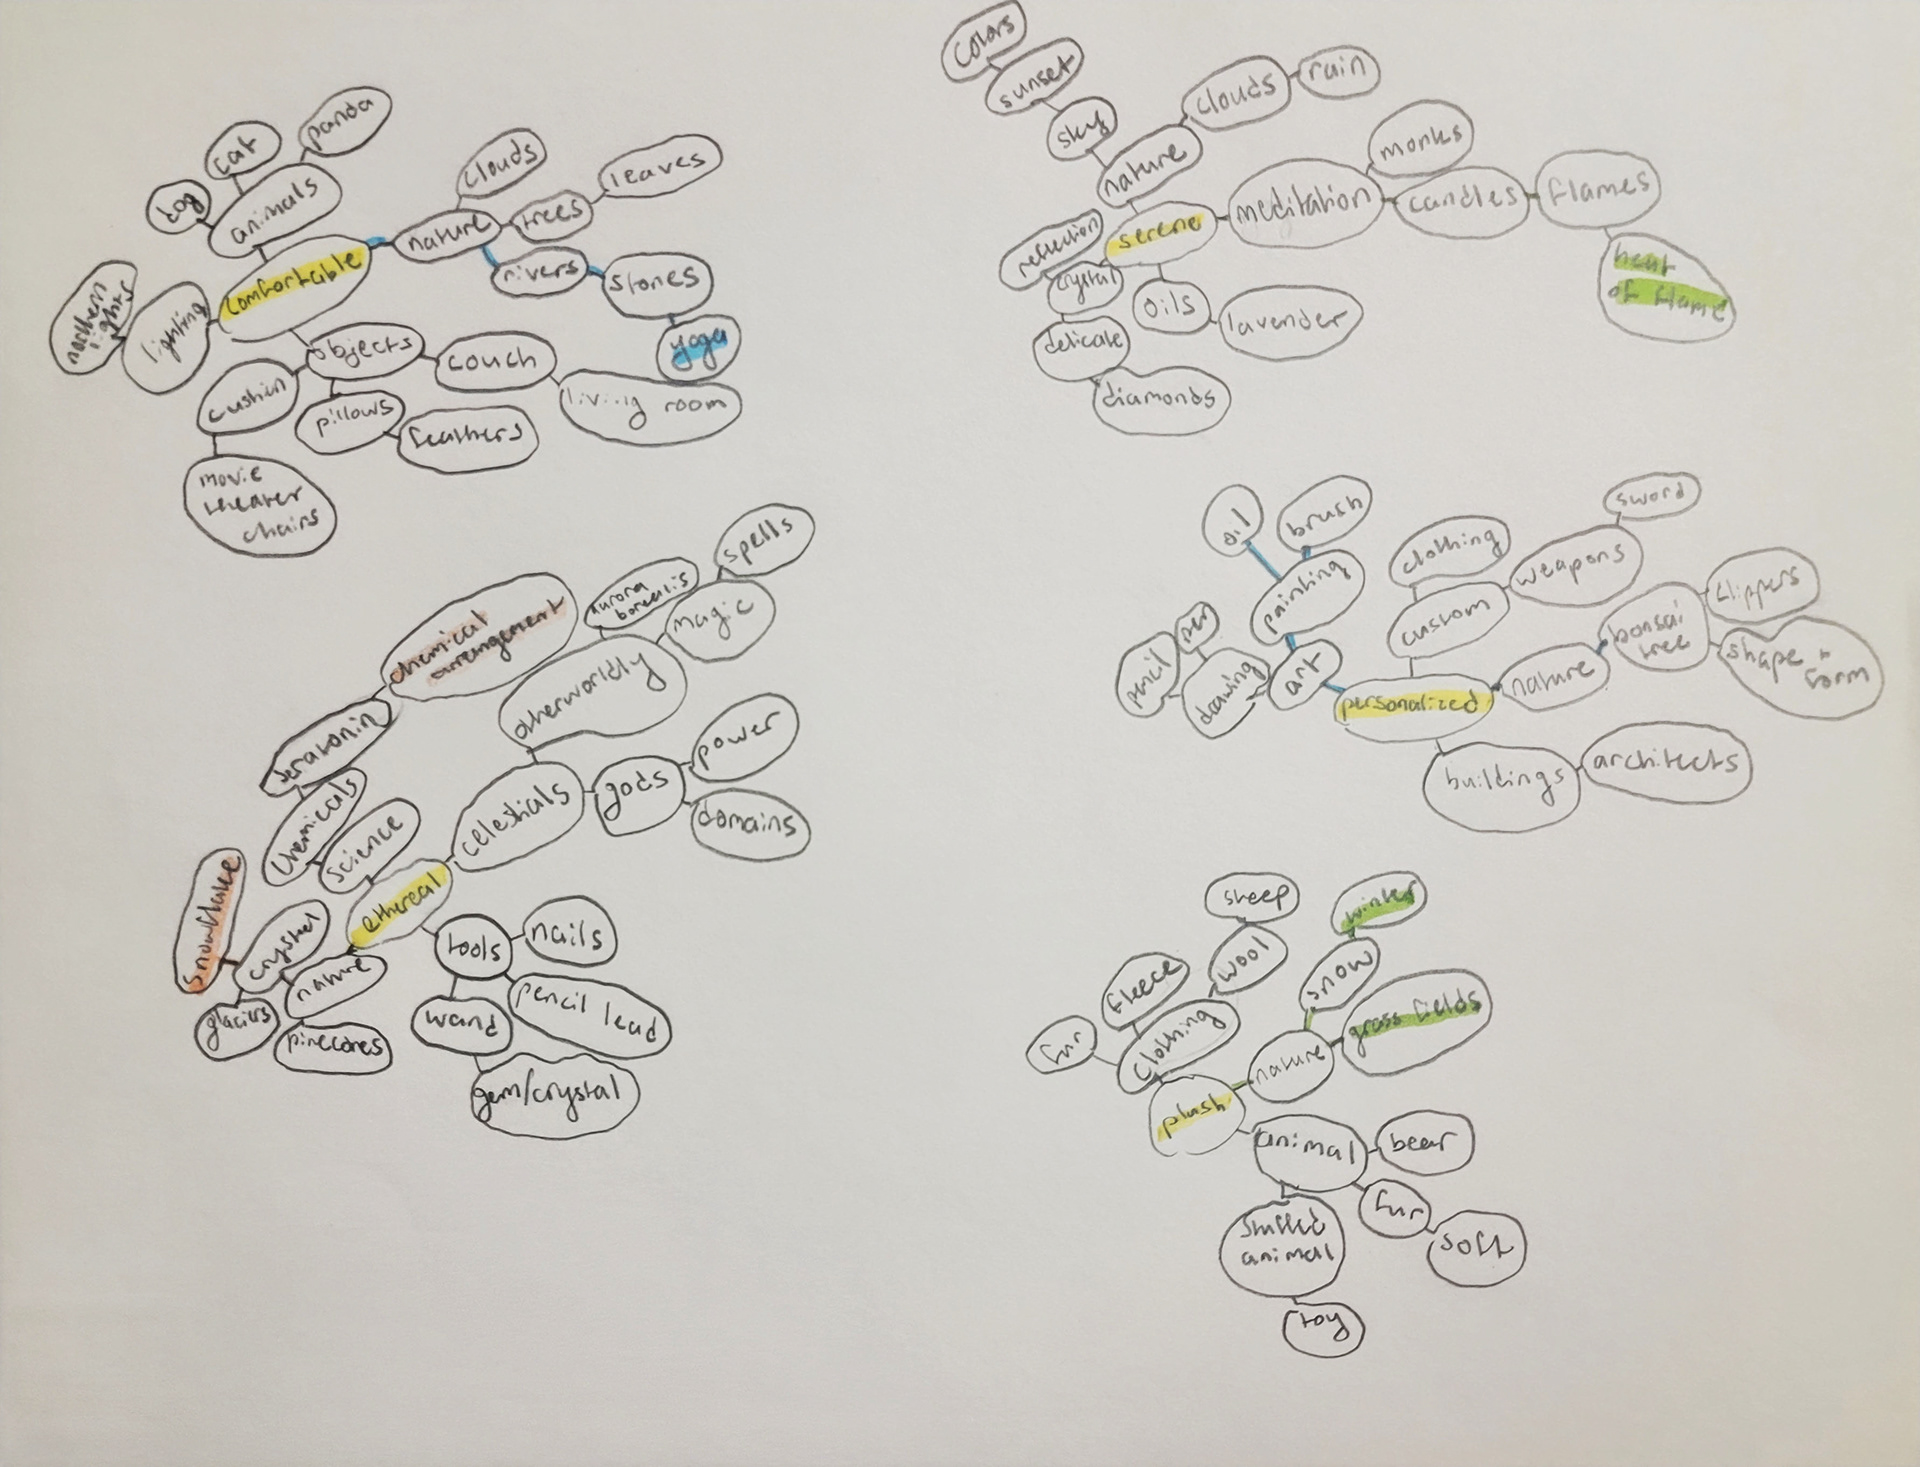 panda
cat
dog
animals
clouds
leaves
trees
nature
rivers
stones
yoga
comfortable
northern
lights
lighting
objects
couch
living room
cushion
pillows
feathers
movie
theater
chairs
colors
sunset
sky
nature
clouds
rain
monks
meditation
candles
flames
heat
of flame
serene
reflection
crystal
oils
lavender
delicate
diamonds
spells
aurora
borealis
magic
chemical
arrangement
otherworldly
seratonin
chemicals
science
celestials
gods
power
domains
ethereal
snowflake
crystal
nature
glaciers
pinecones
tools
nails
wand
pencil lead
gem/crystal
oil
brush
painting
pen
pencil
drawing
art
clothing
custom
weapons
sword
personalized
nature
bonsai
tree
clippers
shape +
form
buildings
architects
sheep
wool
fleece
fur
clothing
winter
snow
grass fields
nature
plush
animal
bear
fur
soft
stuffed
animal
toy